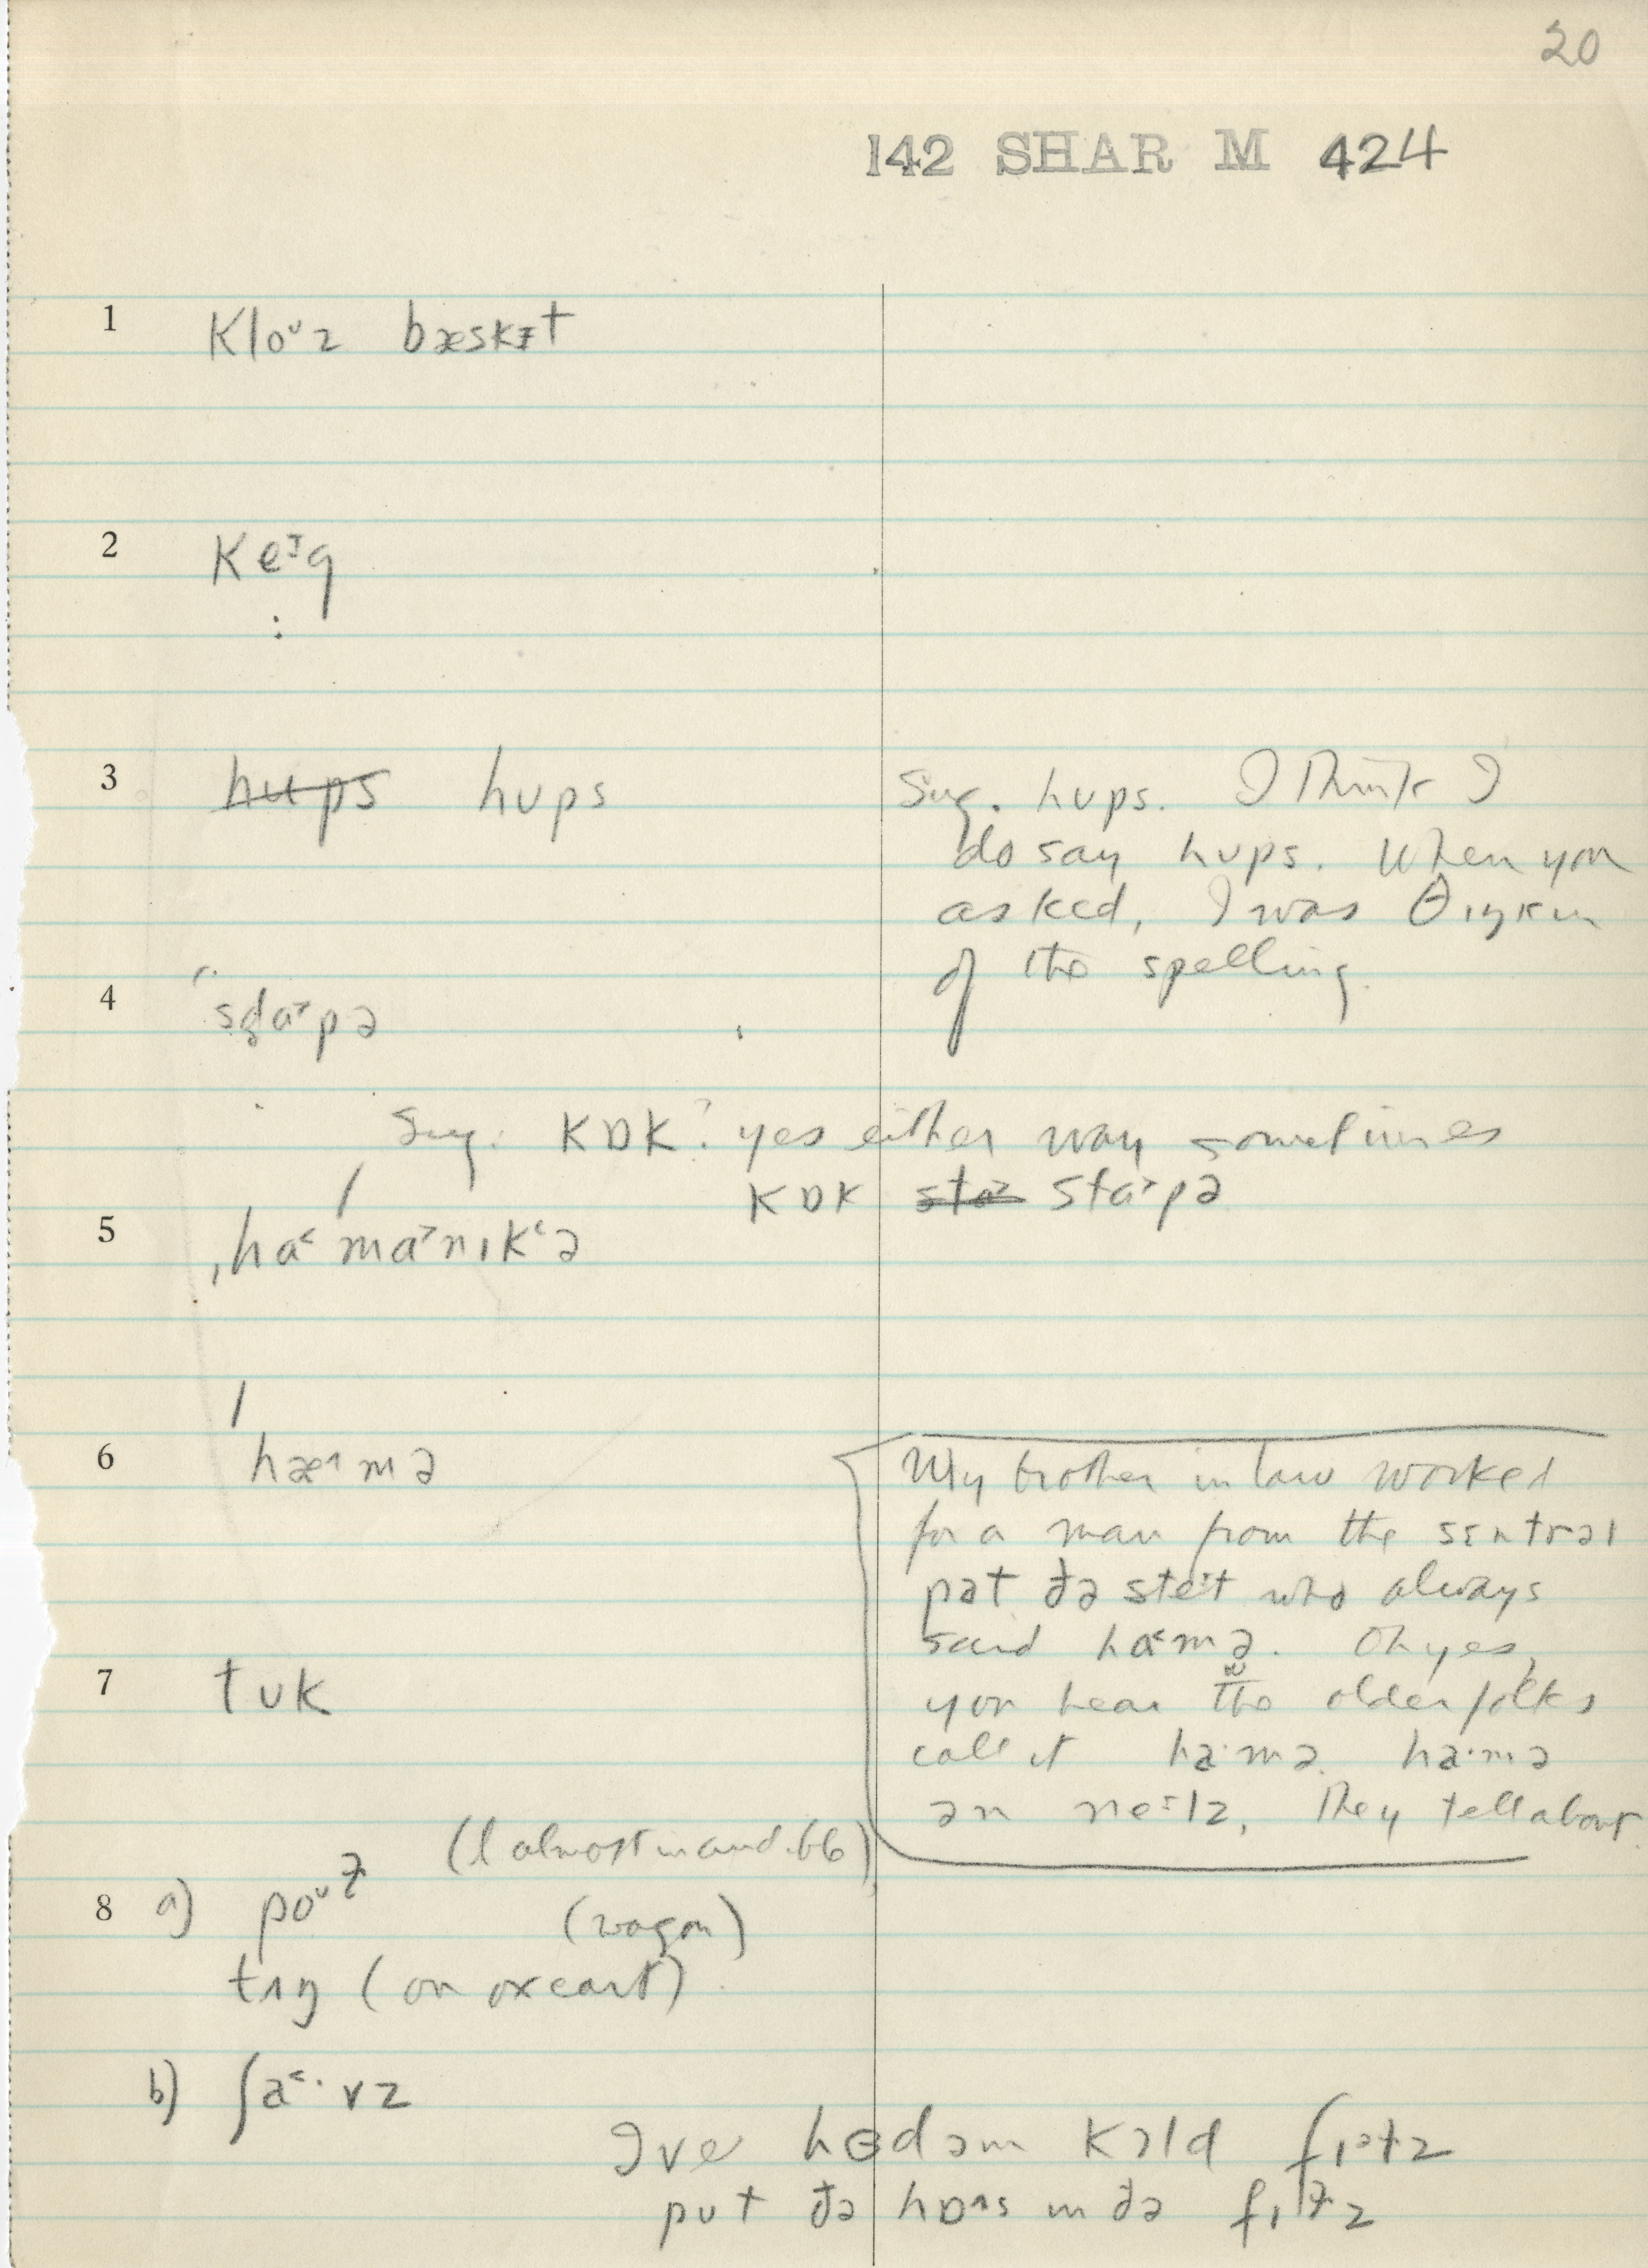 20
142 SHAR M 424
1 kloᶷz bæskɪt
2 keᶦg
:
3 ~~hups~~ hʊps
Sug. hʊps. I think I
do say hʊps. When you
asked, I was θɪŋkɪn
of the spelling.
4 sta˃pə
Sug. kɒk? yes either way sometimes
kɒk ~~sta˃~~ sta˃pə
5 ˌha˂ma˃nɪkʻə
6 hæ˄mə
My brother in law worked
for a man from the sɛntrəl
pət ðə steᶦt who always
said ha˂mə. Oh yes,
you hear the older folks
call it ha·mə. ha·mə
ən neᶦlz, they tell about.
7 tʊk
8 a) poᶷɫ (l almost inaudible)
(wagon)
tʌŋ (on oxcart)
b) ʃa˂·vz
I've hɜdəm kɔld fɪəɫz
put ðə hɒ˄s in ðə fɪɫz